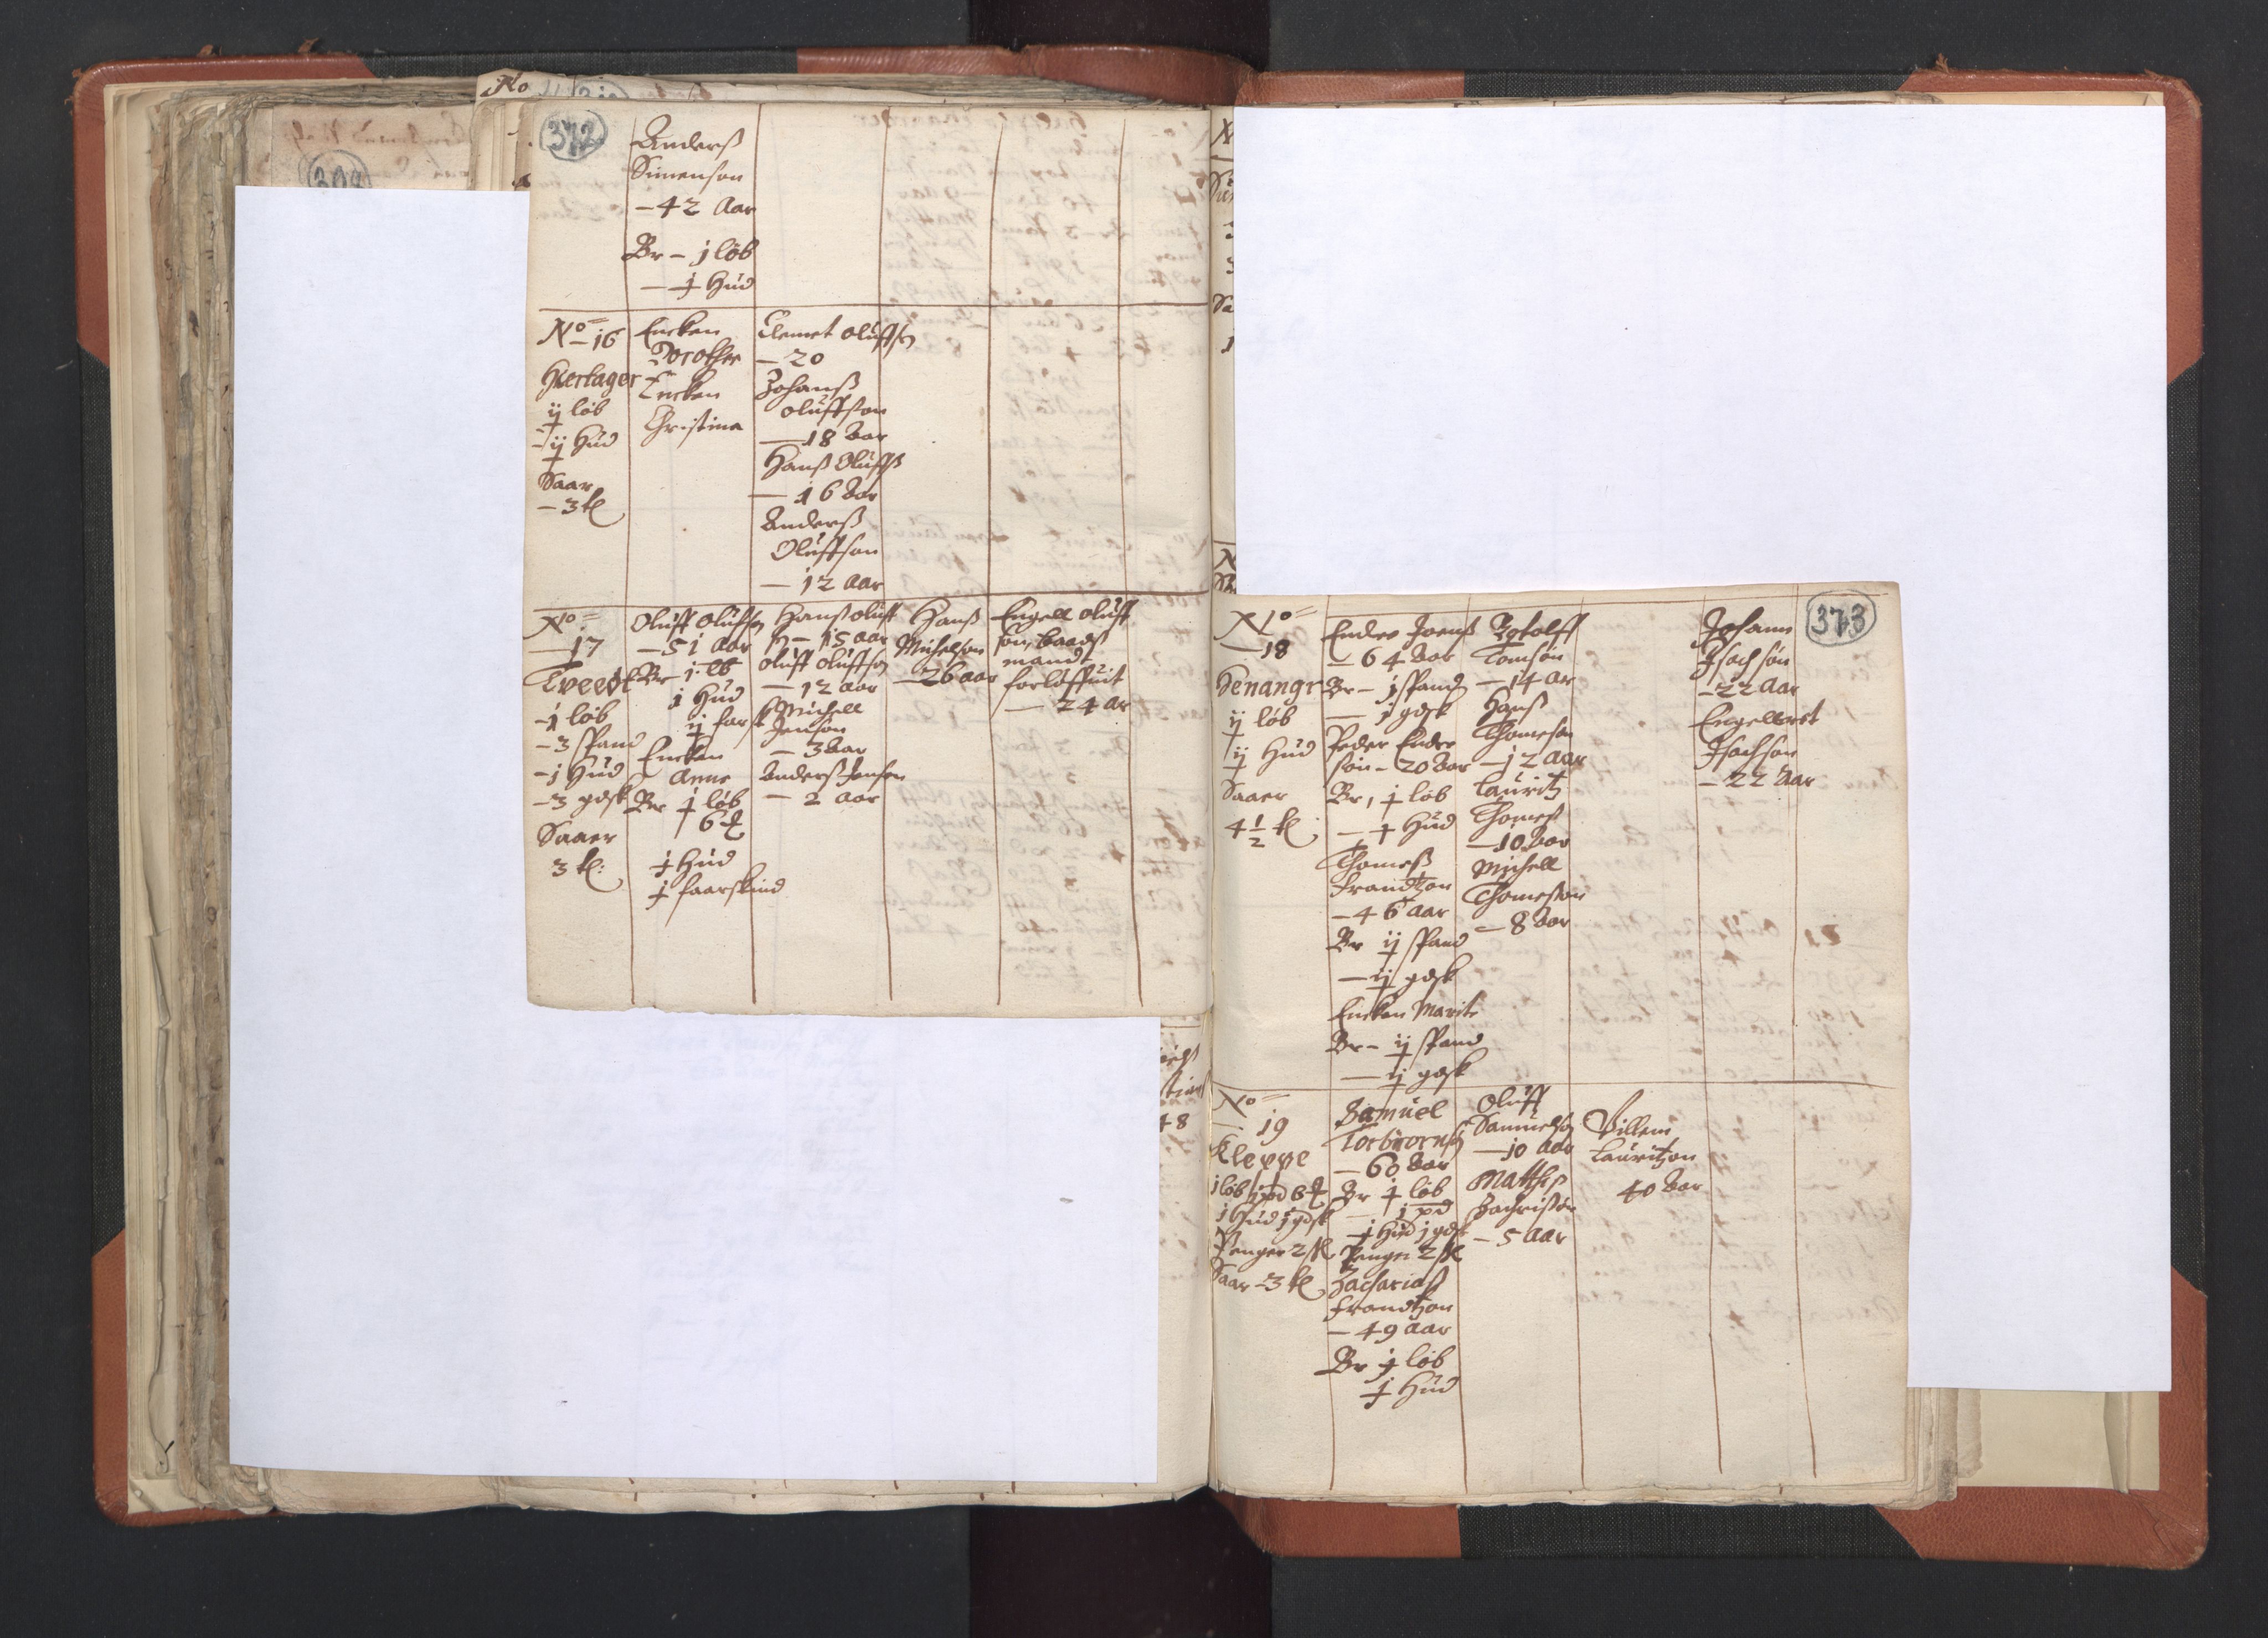 372
Anderß
Simenson
– 42 Aar
Br – j löb
– j Hud
No 16
Hertager
ij löb
– ij Hud
Saar
– 3 tl
Encken
Dorothe
Encken
Christina
Clemet Oluffsn
– 20
Johanß
Oluffson
– 18 Aar
Hanß Oluffß
– 16 Aar
Anderß
Oluffson
– 12 aar
No
17
Tveedt
– 1 löb
– 3 spand
– j Hud
– 3 gdsk
Saaer
3 tl:
Oluff Olufsn
– 51 Aar
Br – j löb
j Hud
Encken
Anne
Br j löb
6
j Hud
j faarskind
Hanß Oluff
sn – 15 aar
Oluff Oluffsn
– 12 aar
Michell
Jenson
– 3 Aar
Anderß Jensen
– 2 aar
Hanß
Michelson
– 26 aar
Engell Oluff
son, baads
mandt
forlöffuit
– 24 ar
373
No
18
Henangr
ij löb
ij Hud
Saaer
4 1/2 tl
Endre Joenß
– 64 Aar
Br – j spand
– j gdsk
Peder Endre
sön – 20 Aar
Br, j löb
– j Hud
Thomeß
Frandtzon
– 46 aar
Br ij spand
– ij gdsk
Encken Marite
Br – ij spand
– ij gdsk
Tomsön
– 14 ar
Hanß
Thomeson
– 12 aar
Lauritz
Thomeß
– 10 Aar
Michell
Thomeson
– 8 Aar
Johann
Jsachsön
– 22 Aar
Engelbret
Jsachson
– 22 Aar
No
19
Kleppe
j Hud j gdsk
Penger 2 sk
Saar – 3 tl
Samuel
Torbiornsn
– 60 Aar
Br j löb
– j pd
– j Hud j gdsk
Penger 2 sk
Zachariaß
Frandtzon
– 49 aar
Br j löb
j Hud
Oluff
Samuelsn
– 10 Aar
Matthiß
Zachrisön
– 5 Aar
Villem
Lauritzon
40 Aar